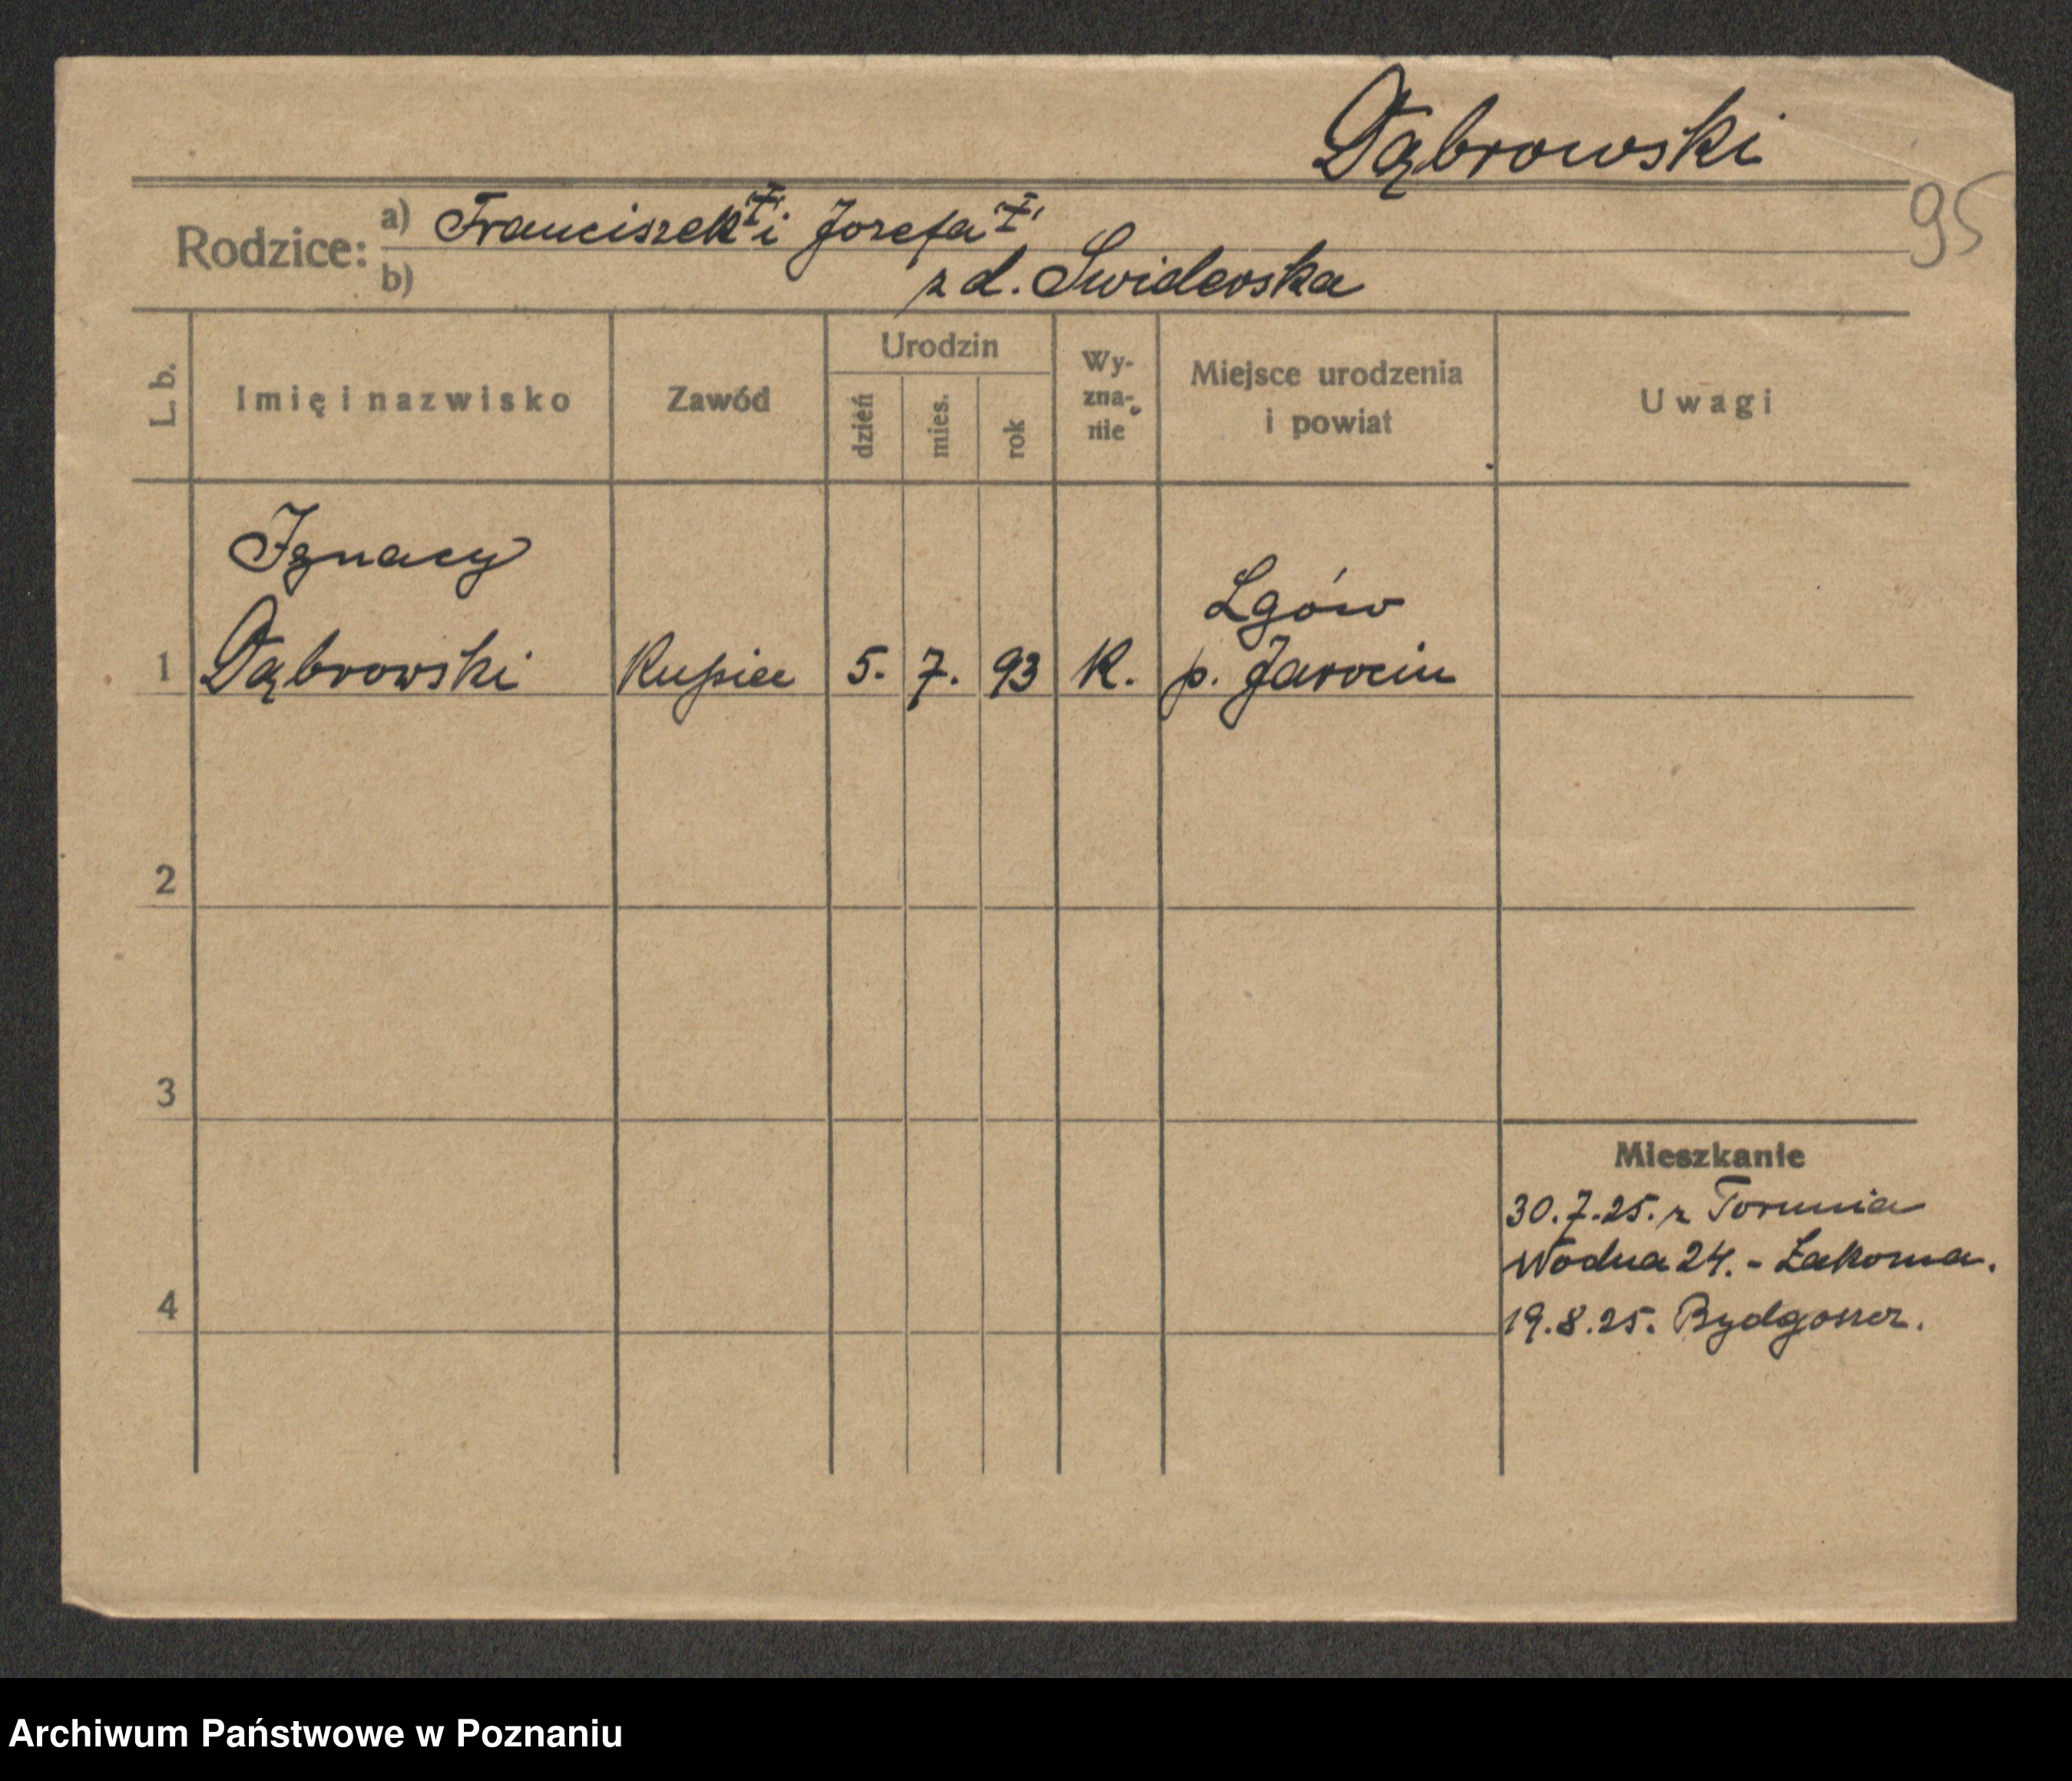 Dąbrowski
95
Rodzice: a) Franciszek i Jozefa
b) z d. Swiderska
L. b. Imię i nazwisko Zawód Urodzin dzień mies. rok Wy-zna-nie Miejsce urodzenia i powiat Uwagi
Ignacy
Lgów
1 Dąbrowski Kupiec 5. 7. 93 K. p. Jarocin
2
3
Mieszkanie
30.7.25. z Torunia
Wodna 24. - Łakoma.
4
19.8.25. Bydgoszcz.
Archiwum Państwowe w Poznaniu